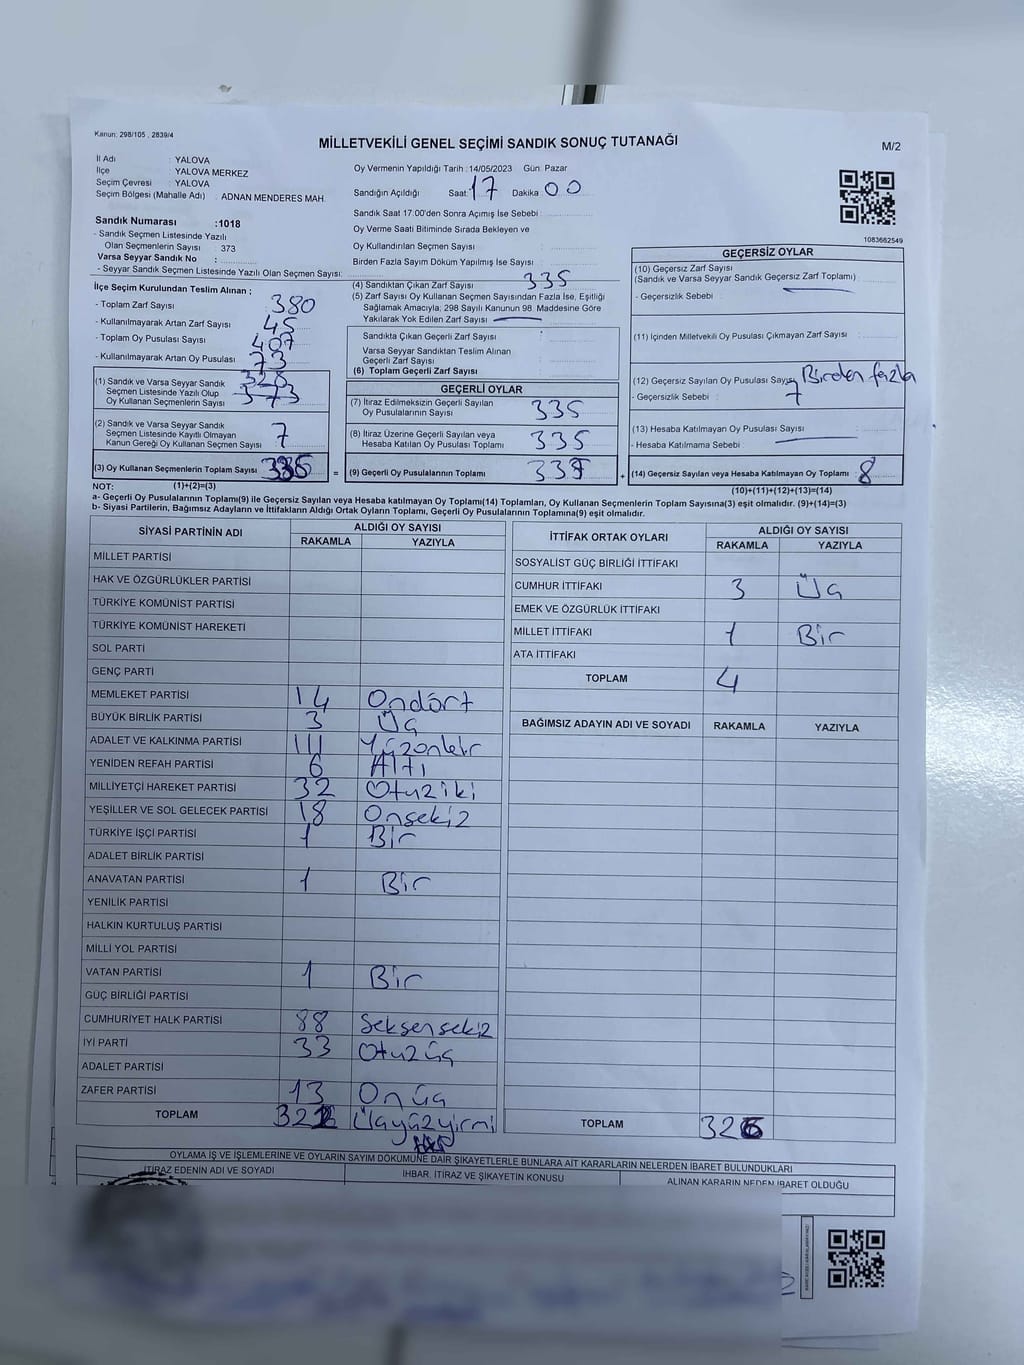 Kanun: 298/105 , 2839/4
MİLLETVEKİLİ GENEL SEÇİMİ SANDIK SONUÇ TUTANAĞI
M/2
İl Adı : YALOVA
İlçe : YALOVA MERKEZ
Seçim Çevresi : YALOVA
Seçim Bölgesi (Mahalle Adı) : ADNAN MENDERES MAH.
Sandık Numarası :1018
- Sandık Seçmen Listesinde Yazılı
Olan Seçmenlerin Sayısı : 373
Varsa Seyyar Sandık No :
- Seyyar Sandık Seçmen Listesinde Yazılı Olan Seçmen Sayısı:
Oy Vermenin Yapıldığı Tarih :14/05/2023 Gün: Pazar
Sandığın Açıldığı Saat: 17 Dakika 00
Sandık Saat 17.00'den Sonra Açımış İse Sebebi :
Oy Verme Saati Bitiminde Sırada Bekleyen ve
Oy Kullandırılan Seçmen Sayısı :
Birden Fazla Sayım Döküm Yapılmış İse Sayısı :
1083682549
İlçe Seçim Kurulundan Teslim Alınan ;
- Toplam Zarf Sayısı : 380
- Kullanılmayarak Artan Zarf Sayısı : 45
- Toplam Oy Pusulası Sayısı : 407
- Kullanılmayarak Artan Oy Pusulası : 73
(1) Sandık ve Varsa Seyyar Sandık 328
Seçmen Listesinde Yazılı Olup
Oy Kullanan Seçmenlerin Sayısı : 373
(2) Sandık ve Varsa Seyyar Sandık
Seçmen Listesinde Kayıtlı Olmayan
Kanun Gereği Oy Kullanan Seçmen Sayısı : 7
(3) Oy Kullanan Seçmenlerin Toplam Sayısı
(1)+(2)=(3)
(4) Sandıktan Çıkan Zarf Sayısı : 335
(5) Zarf Sayısı Oy Kullanan Seçmen Sayısından Fazla İse, Eşitliği
Sağlamak Amacıyla; 298 Sayılı Kanunun 98. Maddesine Göre
Yakılarak Yok Edilen Zarf Sayısı :
Sandıkta Çıkan Geçerli Zarf Sayısı :
Varsa Seyyar Sandıktan Teslim Alınan
Geçerli Zarf Sayısı :
(6) Toplam Geçerli Zarf Sayısı :
GEÇERLİ OYLAR
(7) İtiraz Edilmeksizin Geçerli Sayılan
Oy Pusulalarının Sayısı : 335
(8) İtiraz Üzerine Geçerli Sayılan veya
Hesaba Katılan Oy Pusulası Toplamı : 335
= (9) Geçerli Oy Pusulalarının Toplamı :
GEÇERSİZ OYLAR
(10) Geçersiz Zarf Sayısı
(Sandık ve Varsa Seyyar Sandık Geçersiz Zarf Toplamı) :
- Geçersizlik Sebebi :
(11) İçinden Milletvekili Oy Pusulası Çıkmayan Zarf Sayısı :
(12) Geçersiz Sayılan Oy Pusulası Sayısı Birden fazla
- Geçersizlik Sebebi : 7
(13) Hesaba Katılmayan Oy Pusulası Sayısı :
- Hesaba Katılmama Sebebi :
+ (14) Geçersiz Sayılan veya Hesaba Katılmayan Oy Toplamı : 8
(10)+(11)+(12)+(13)=(14)
NOT:
a- Geçerli Oy Pusulalarının Toplamı(9) ile Geçersiz Sayılan veya Hesaba katılmayan Oy Toplamı(14) Toplamları, Oy Kullanan Seçmenlerin Toplam Sayısına(3) eşit olmalıdır. (9)+(14)=(3)
b- Siyasi Partilerin, Bağımsız Adayların ve İttifakların Aldığı Ortak Oyların Toplamı, Geçerli Oy Pusulalarının Toplamına(9) eşit olmalıdır.
SİYASİ PARTİNİN ADI
ALDIĞI OY SAYISI
RAKAMLA YAZIYLA
MİLLET PARTİSİ
HAK VE ÖZGÜRLÜKLER PARTİSİ
TÜRKİYE KOMÜNİST PARTİSİ
TÜRKİYE KOMÜNİST HAREKETİ
SOL PARTİ
GENÇ PARTİ
MEMLEKET PARTİSİ 14 Ondört
BÜYÜK BİRLİK PARTİSİ 3 Üç
ADALET VE KALKINMA PARTİSİ 111 Yüzonbir
YENİDEN REFAH PARTİSİ 6 Altı
MİLLİYETÇİ HAREKET PARTİSİ 32 Otuziki
YEŞİLLER VE SOL GELECEK PARTİSİ 18 Onsekiz
TÜRKİYE İŞÇİ PARTİSİ 1 Bir
ADALET BİRLİK PARTİSİ
ANAVATAN PARTİSİ 1 Bir
YENİLİK PARTİSİ
HALKIN KURTULUŞ PARTİSİ
MİLLİ YOL PARTİSİ
VATAN PARTİSİ 1 Bir
GÜÇ BİRLİĞİ PARTİSİ
CUMHURİYET HALK PARTİSİ 88 Seksensekiz
İYİ PARTİ 33 Otuzüç
ADALET PARTİSİ
ZAFER PARTİSİ 13 Onüç
TOPLAM Üçyüzyirmi
İTTİFAK ORTAK OYLARI
ALDIĞI OY SAYISI
RAKAMLA YAZIYLA
SOSYALİST GÜÇ BİRLİĞİ İTTİFAKI
CUMHUR İTTİFAKI 3 Üç
EMEK VE ÖZGÜRLÜK İTTİFAKI
MİLLET İTTİFAKI 1 Bir
ATA İTTİFAKI
TOPLAM 4
BAĞIMSIZ ADAYIN ADI VE SOYADI RAKAMLA YAZIYLA
TOPLAM 326
OYLAMA İŞ VE İŞLEMLERİNE VE OYLARIN SAYIM DÖKÜMÜNE DAİR ŞİKAYETLERLE BUNLARA AİT KARARLARIN NELERDEN İBARET BULUNDUKLARI
İTİRAZ EDENİN ADI VE SOYADI
İHBAR, İTİRAZ VE ŞİKAYETİN KONUSU
ALINAN KARARIN NEDEN İBARET OLDUĞU